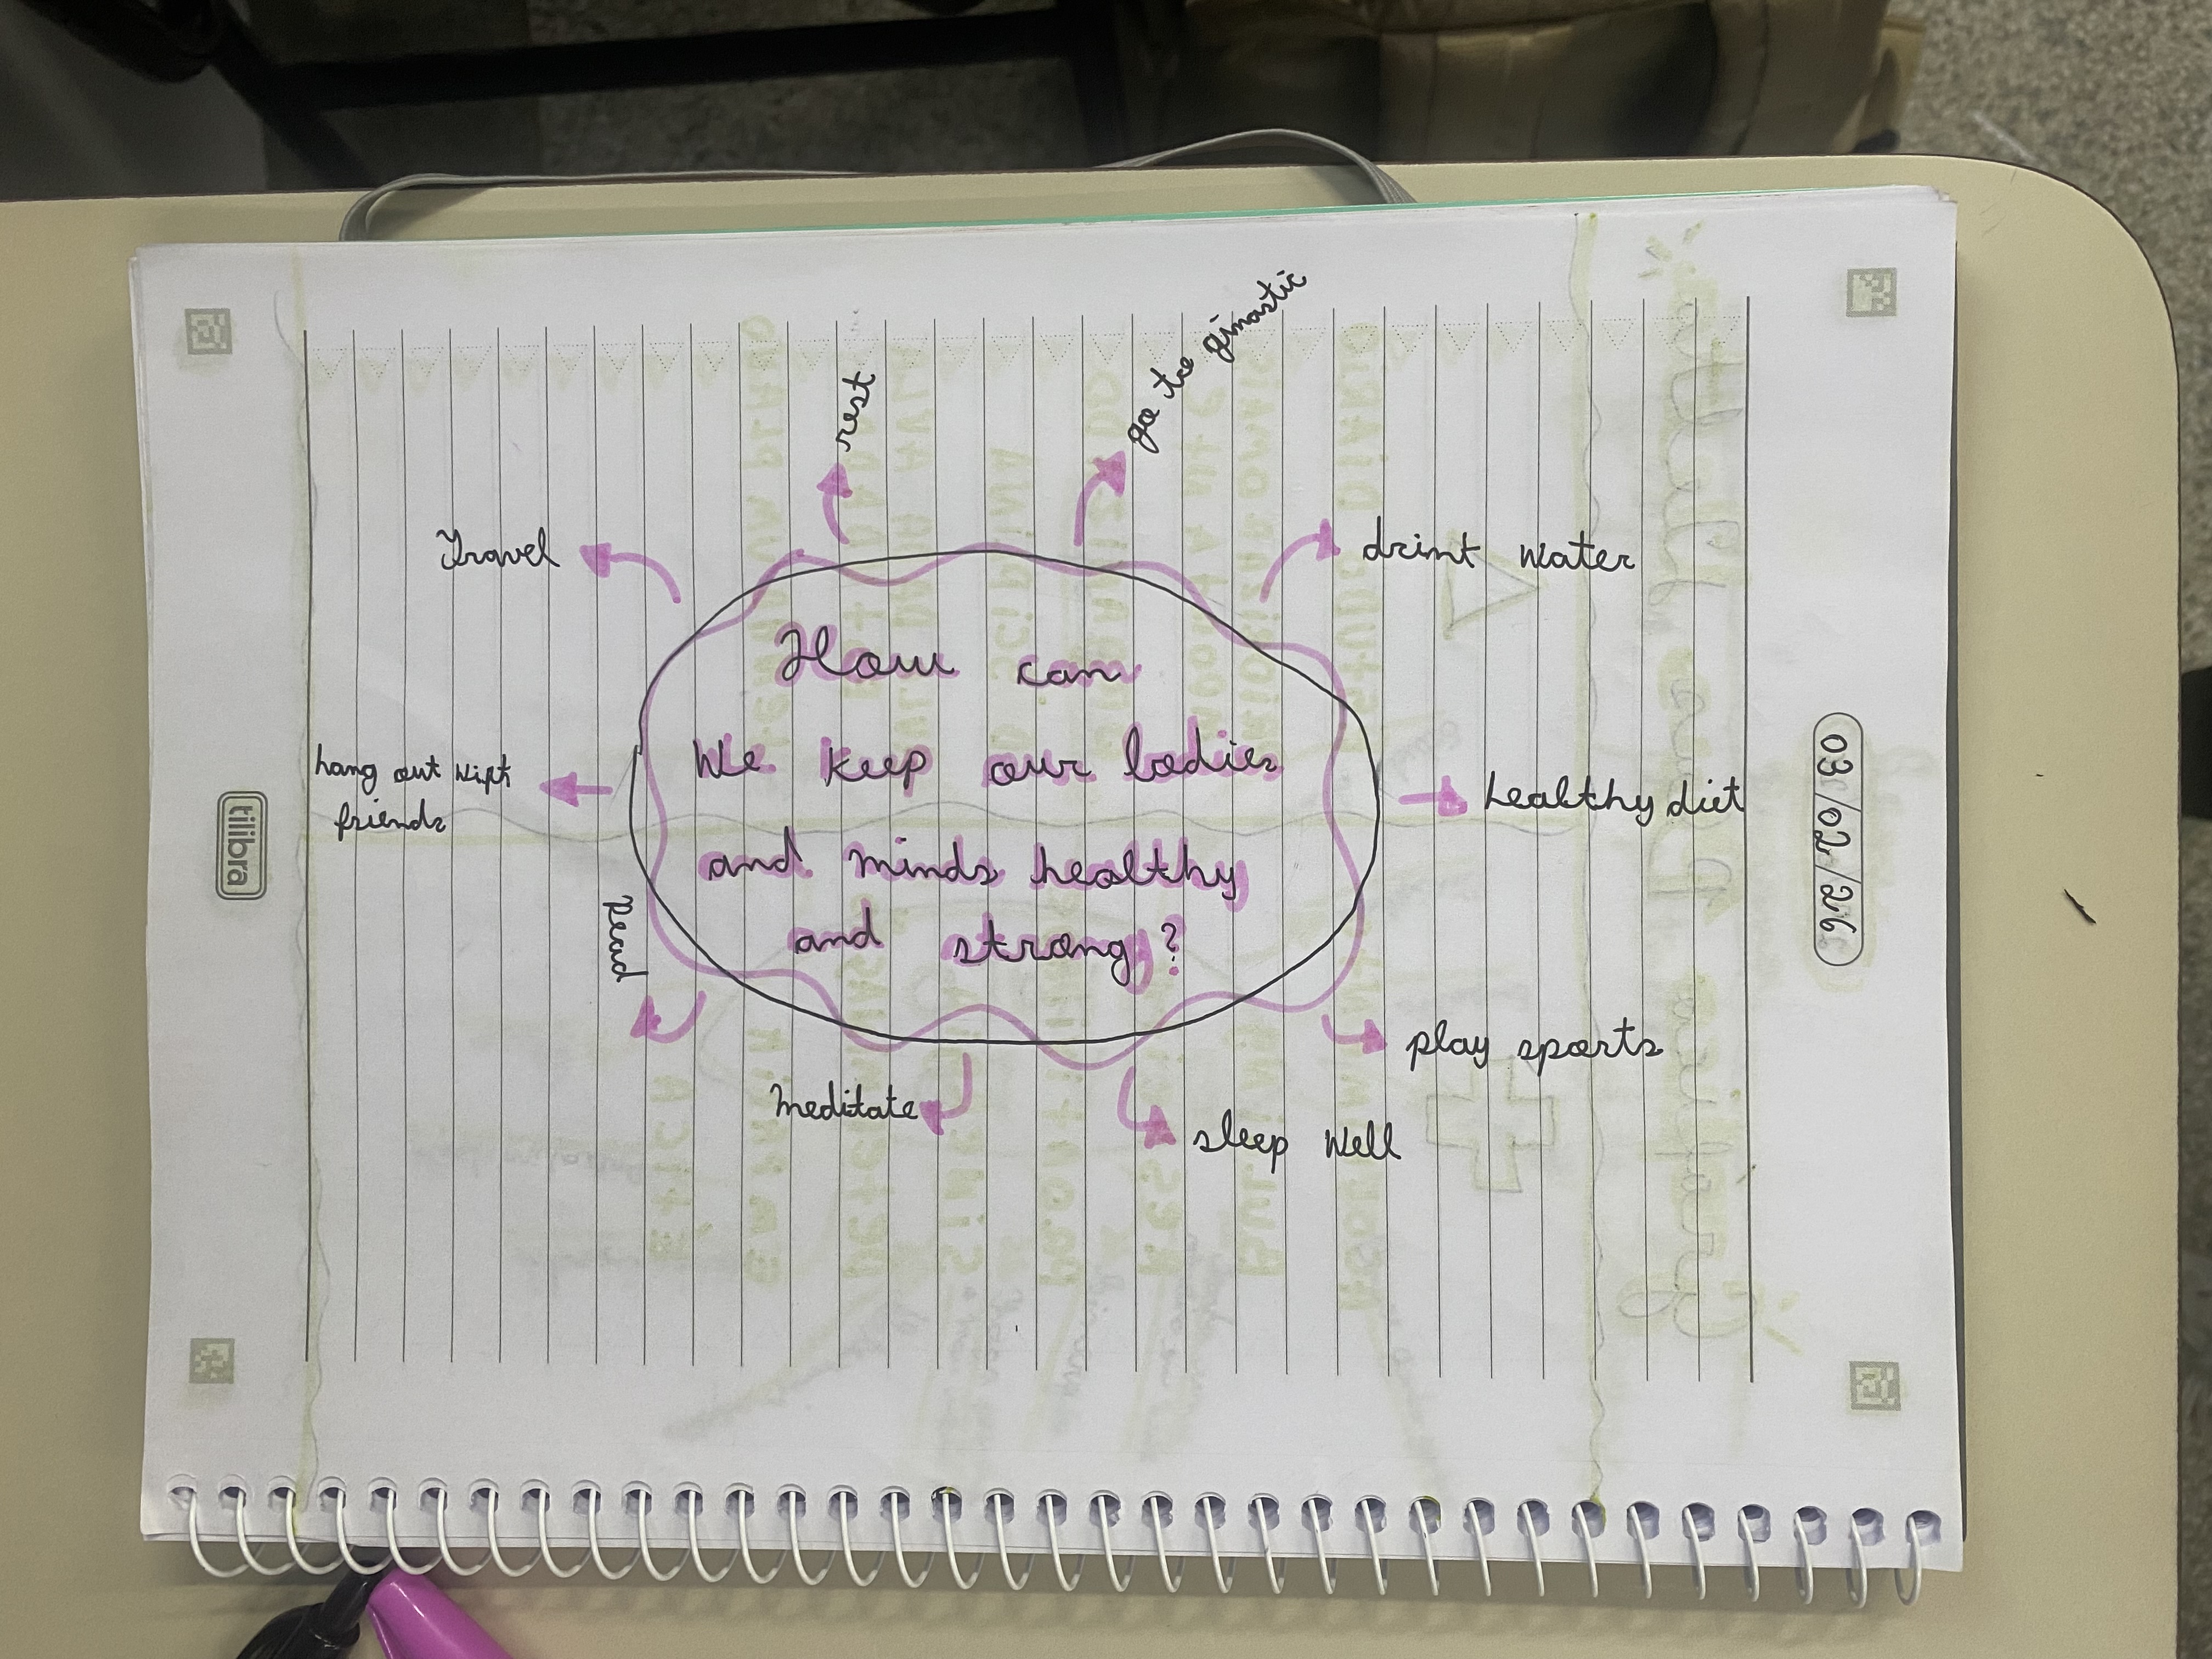 How can
We keep our bodies
and minds healthy
and strong?
rest
go to ginastic
drint water
healthy diet
play sports
sleep well
meditate
Read
hang out wipt
friends
Travel
03/02/26
tilibra